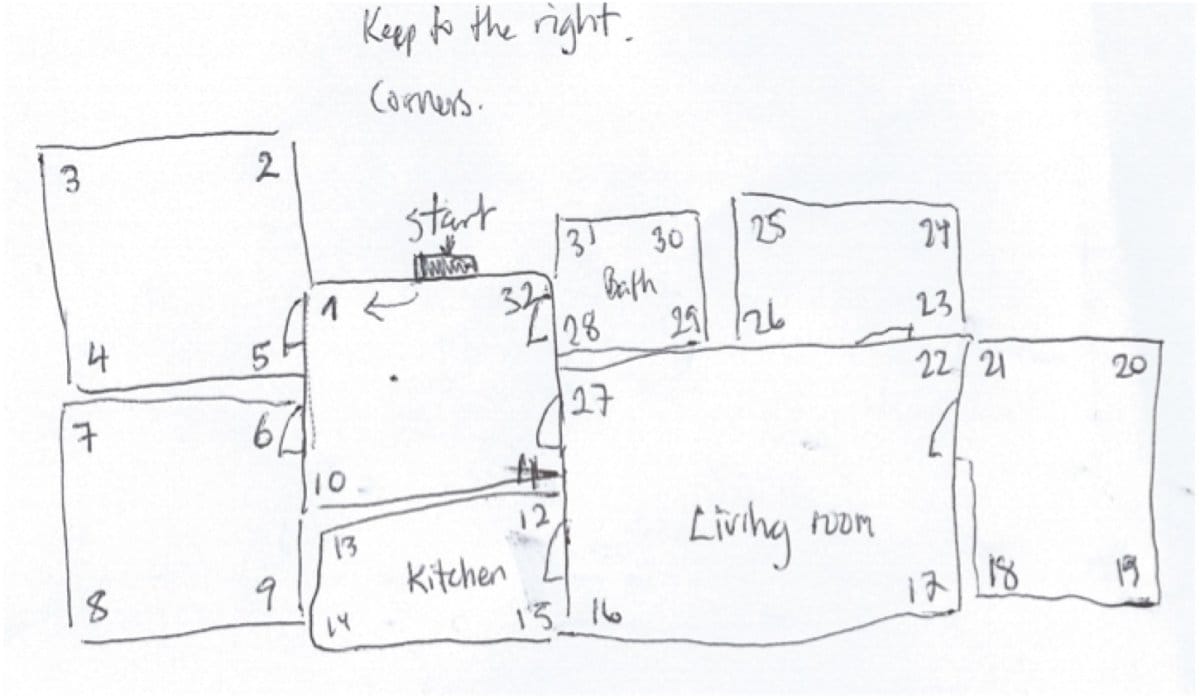 Keep to the right.
Corners.
3 2
start
31 30 25 24
Bath
1 32 28 29 26 23
4 5 22 21 20
7 6 27
10 11
12
13 Kitchen Living room
8 9 14 15 16 17 18 19